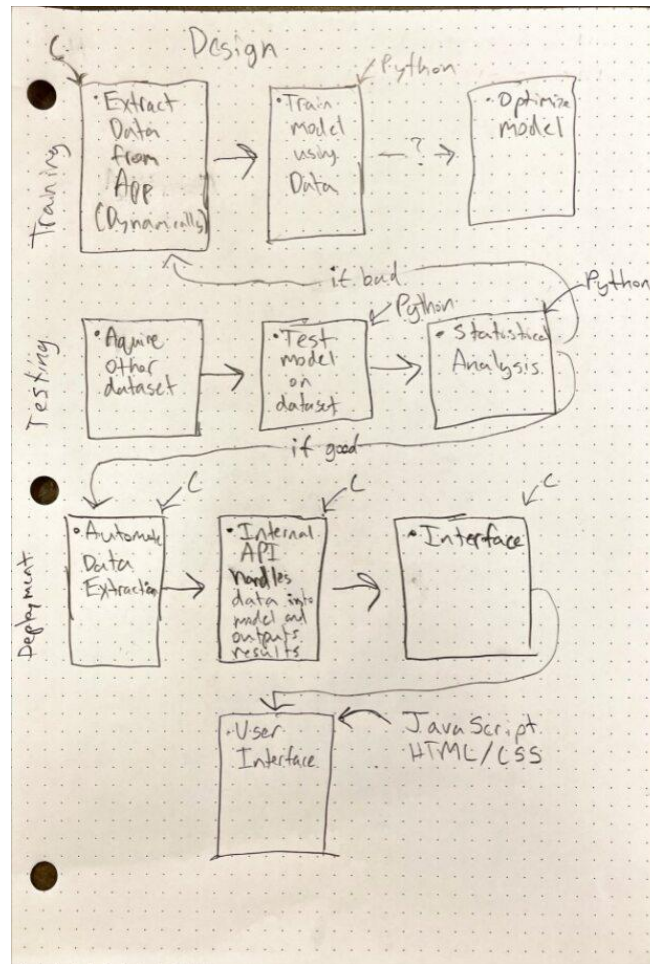 Design
C
Python
Training
• Extract
Data
from
App
(Dynamically)
• Train
model
using
Data
?
• Optimize
model
if bad
Testing
• Aquire
other
dataset
Python
• Test
model
on
dataset
Python
• Statistical
Analysis
if good
Deployment
C
• Automate
Data
Extraction
C
• Internal
API
handles
data into
model and
outputs
results
C
• Interface
• User
Interface
JavaScript
HTML/CSS